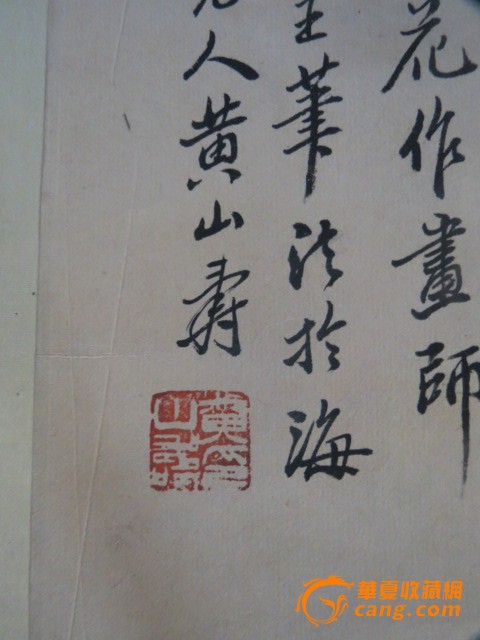 花作畫師
王筆法於海
人黄山壽
華夏收藏網
cang.com